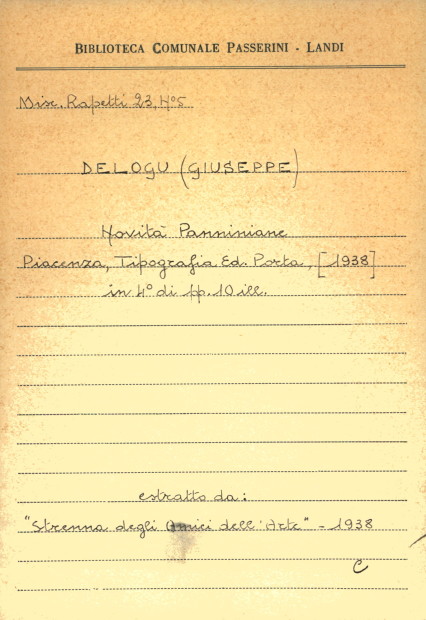 BIBLIOTECA COMUNALE PASSERINI - LANDI
Misc. Rapetti 23, Nº5
DELOGU (GIUSEPPE)
Novità Panniniane
Piacenza, Tipografia Ed. Porta, [1938]
in 4º di pp. 10 ill.
estratto da:
"Strenna degli Amici dell'Arte" - 1938
C